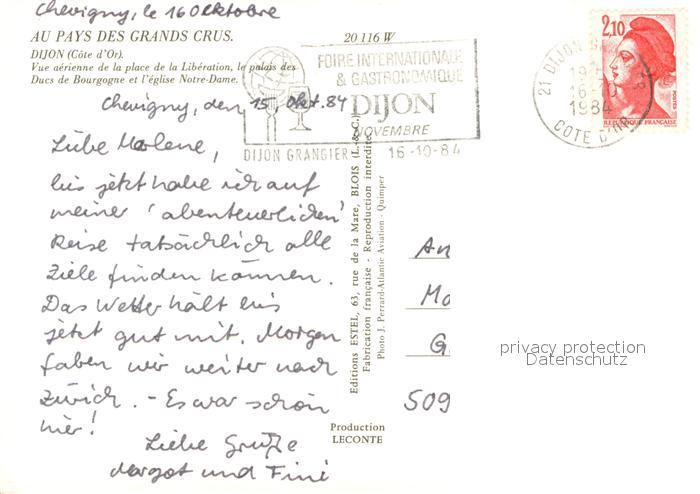 Chevigny, le 16 Oktobre
AU PAYS DES GRANDS CRUS.
20 116 W
DIJON (Côte d'Or).
Vue aérienne de la place de la Libération, le palais des
Ducs de Bourgogne et l'église Notre-Dame.
FOIRE INTERNATIONALE
& GASTRONOMIQUE
DIJON
NOVEMBRE
DIJON GRANGIER 16-10-84
2,10
POSTES
REPUBLIQUE FRANÇAISE
21 DIJON
16-10
1984
COTE D'OR
Chevigny, den 15. Okt. 84
Liebe Marlene,
bis jetzt habe ich auf
meiner 'abenteuerlichen'
Reise tatsächlich alle
Ziele finden können.
Das Wetter hält bis
jetzt gut mit. Morgen
fahren wir weiter nach
Zürich. - Es war schön
hier!
Liebe Grüße
Margot und Fini
Editions ESTEL, 63, rue de la Mare, BLOIS (L.-&-C.)
Fabrication française - Reproduction interdite
Photo J. Perrard-Atlantic Aviation - Quimper
Production
LECONTE
An
Mo
G
509
privacy protection
Datenschutz